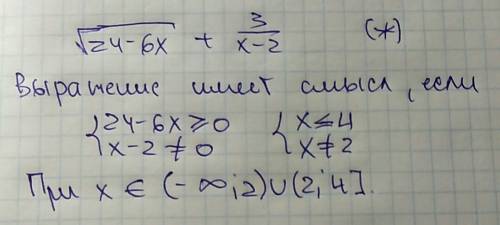 √(24-6x) + 3/(x-2) (*)
Выражение имеет смысл, если
{24-6x ≥ 0 {x ≤ 4
{x-2 ≠ 0 {x ≠ 2
При x ∈ (-∞; 2)∪(2; 4].